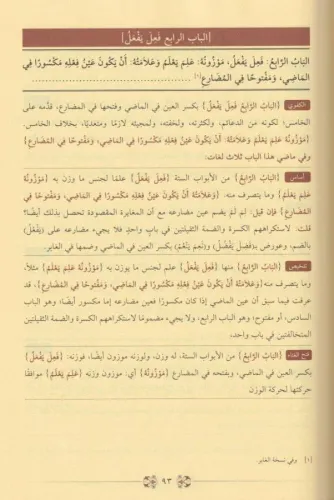 [الباب الرابع فَعِلَ يَفْعَلُ]
البَابُ الرَّابِعُ: فَعِلَ يَفْعَلُ، مَوْزُونُهُ: عَلِمَ يَعْلَمُ وَعَلَامَتُهُ: أَنْ يَكُونَ عَيْنُ فِعْلِهِ مَكْسُورًا فِي
المَاضِي، وَمَفْتُوحًا فِي المُضَارِعِ[١]
الكفوي {البَابُ الرَّابِعُ فَعِلَ يَفْعَلُ} بكسر العين في الماضي وفتحها في المضارع، قدَّمه على
الخامس؛ لكونه من الدعائم، ولكثرته، ولخفته، ولمجيئه لازمًا ومتعديًا، بخلاف الخامس.
{مَوْزُونُهُ: عَلِمَ يَعْلَمُ وَعَلَامَتُهُ: أَنْ يَكُونَ عَيْنُ فِعْلِهِ مَكْسُورًا فِي المَاضِي، وَمَفْتُوحًا فِي المُضَارِعِ}
وفي ماضي هذا الباب ثلاث لغات:
أساس {البَابُ الرَّابِعُ} من الأبواب الستة {فَعِلَ يَفْعَلُ} علمًا لجنس ما يوزن به {مَوْزُونُهُ
عَلِمَ يَعْلَمُ} وما يتصرف منه. {وَعَلَامَتُهُ: أَنْ يَكُونَ عَيْنُ فِعْلِهِ مَكْسُورًا فِي المَاضِي، وَمَفْتُوحًا فِي
المُضَارِعِ} فإن قيل: لم لمْ يضم عين مضارعه مع أن المغايرة المقصودة تحصل بذلك أيضًا؟
قلت: لاستكراههم الكسرة والضمة الثقيلتين في باب واحد فلا يجيء مضارعه على (يَفْعُلُ)
بالضم، وعورض بـ(فَضِلَ يَفْضُلُ) و(نَعِمَ يَنْعُمُ) بكسر العين في الماضي وضمها في الغابر.
تلخيص {البَابُ الرَّابِعُ} منها {فَعِلَ يَفْعَلُ} علم لجنس ما يوزن به {مَوْزُونُهُ عَلِمَ يَعْلَمُ} مثلًا،
وما يتصرف منه {وَعَلَامَتُهُ: أَنْ يَكُونَ عَيْنُ فِعْلِهِ مَكْسُورًا فِي المَاضِي، وَمَفْتُوحًا فِي المُضَارِعِ}، قد
عرفت فيما سبق أن عين الماضي إذا كان مكسورًا فعين مضارعه إما مكسور أيضًا؛ وهو الباب
السادس، أو مفتوح؛ وهو الباب الرابع، ولا يجيء مضمومًا لاستكراههم الكسرة والضمة الثقيلتين
المتخالفتين في باب واحد،
{البَابُ الرَّابِعُ} من الأبواب الستة، له وزن، ولوزنه موزون أيضًا، فوزنه: {فَعِلَ يَفْعَلُ}
بكسر العين في الماضي، وبفتحه في المضارع {مَوْزُونُهُ} أي: موزون وزنِه {عَلِمَ يَعْلَمُ} موافقًا
حركتها لحركة الوزن
[١] وفي نسخة الغابر.
٩٣